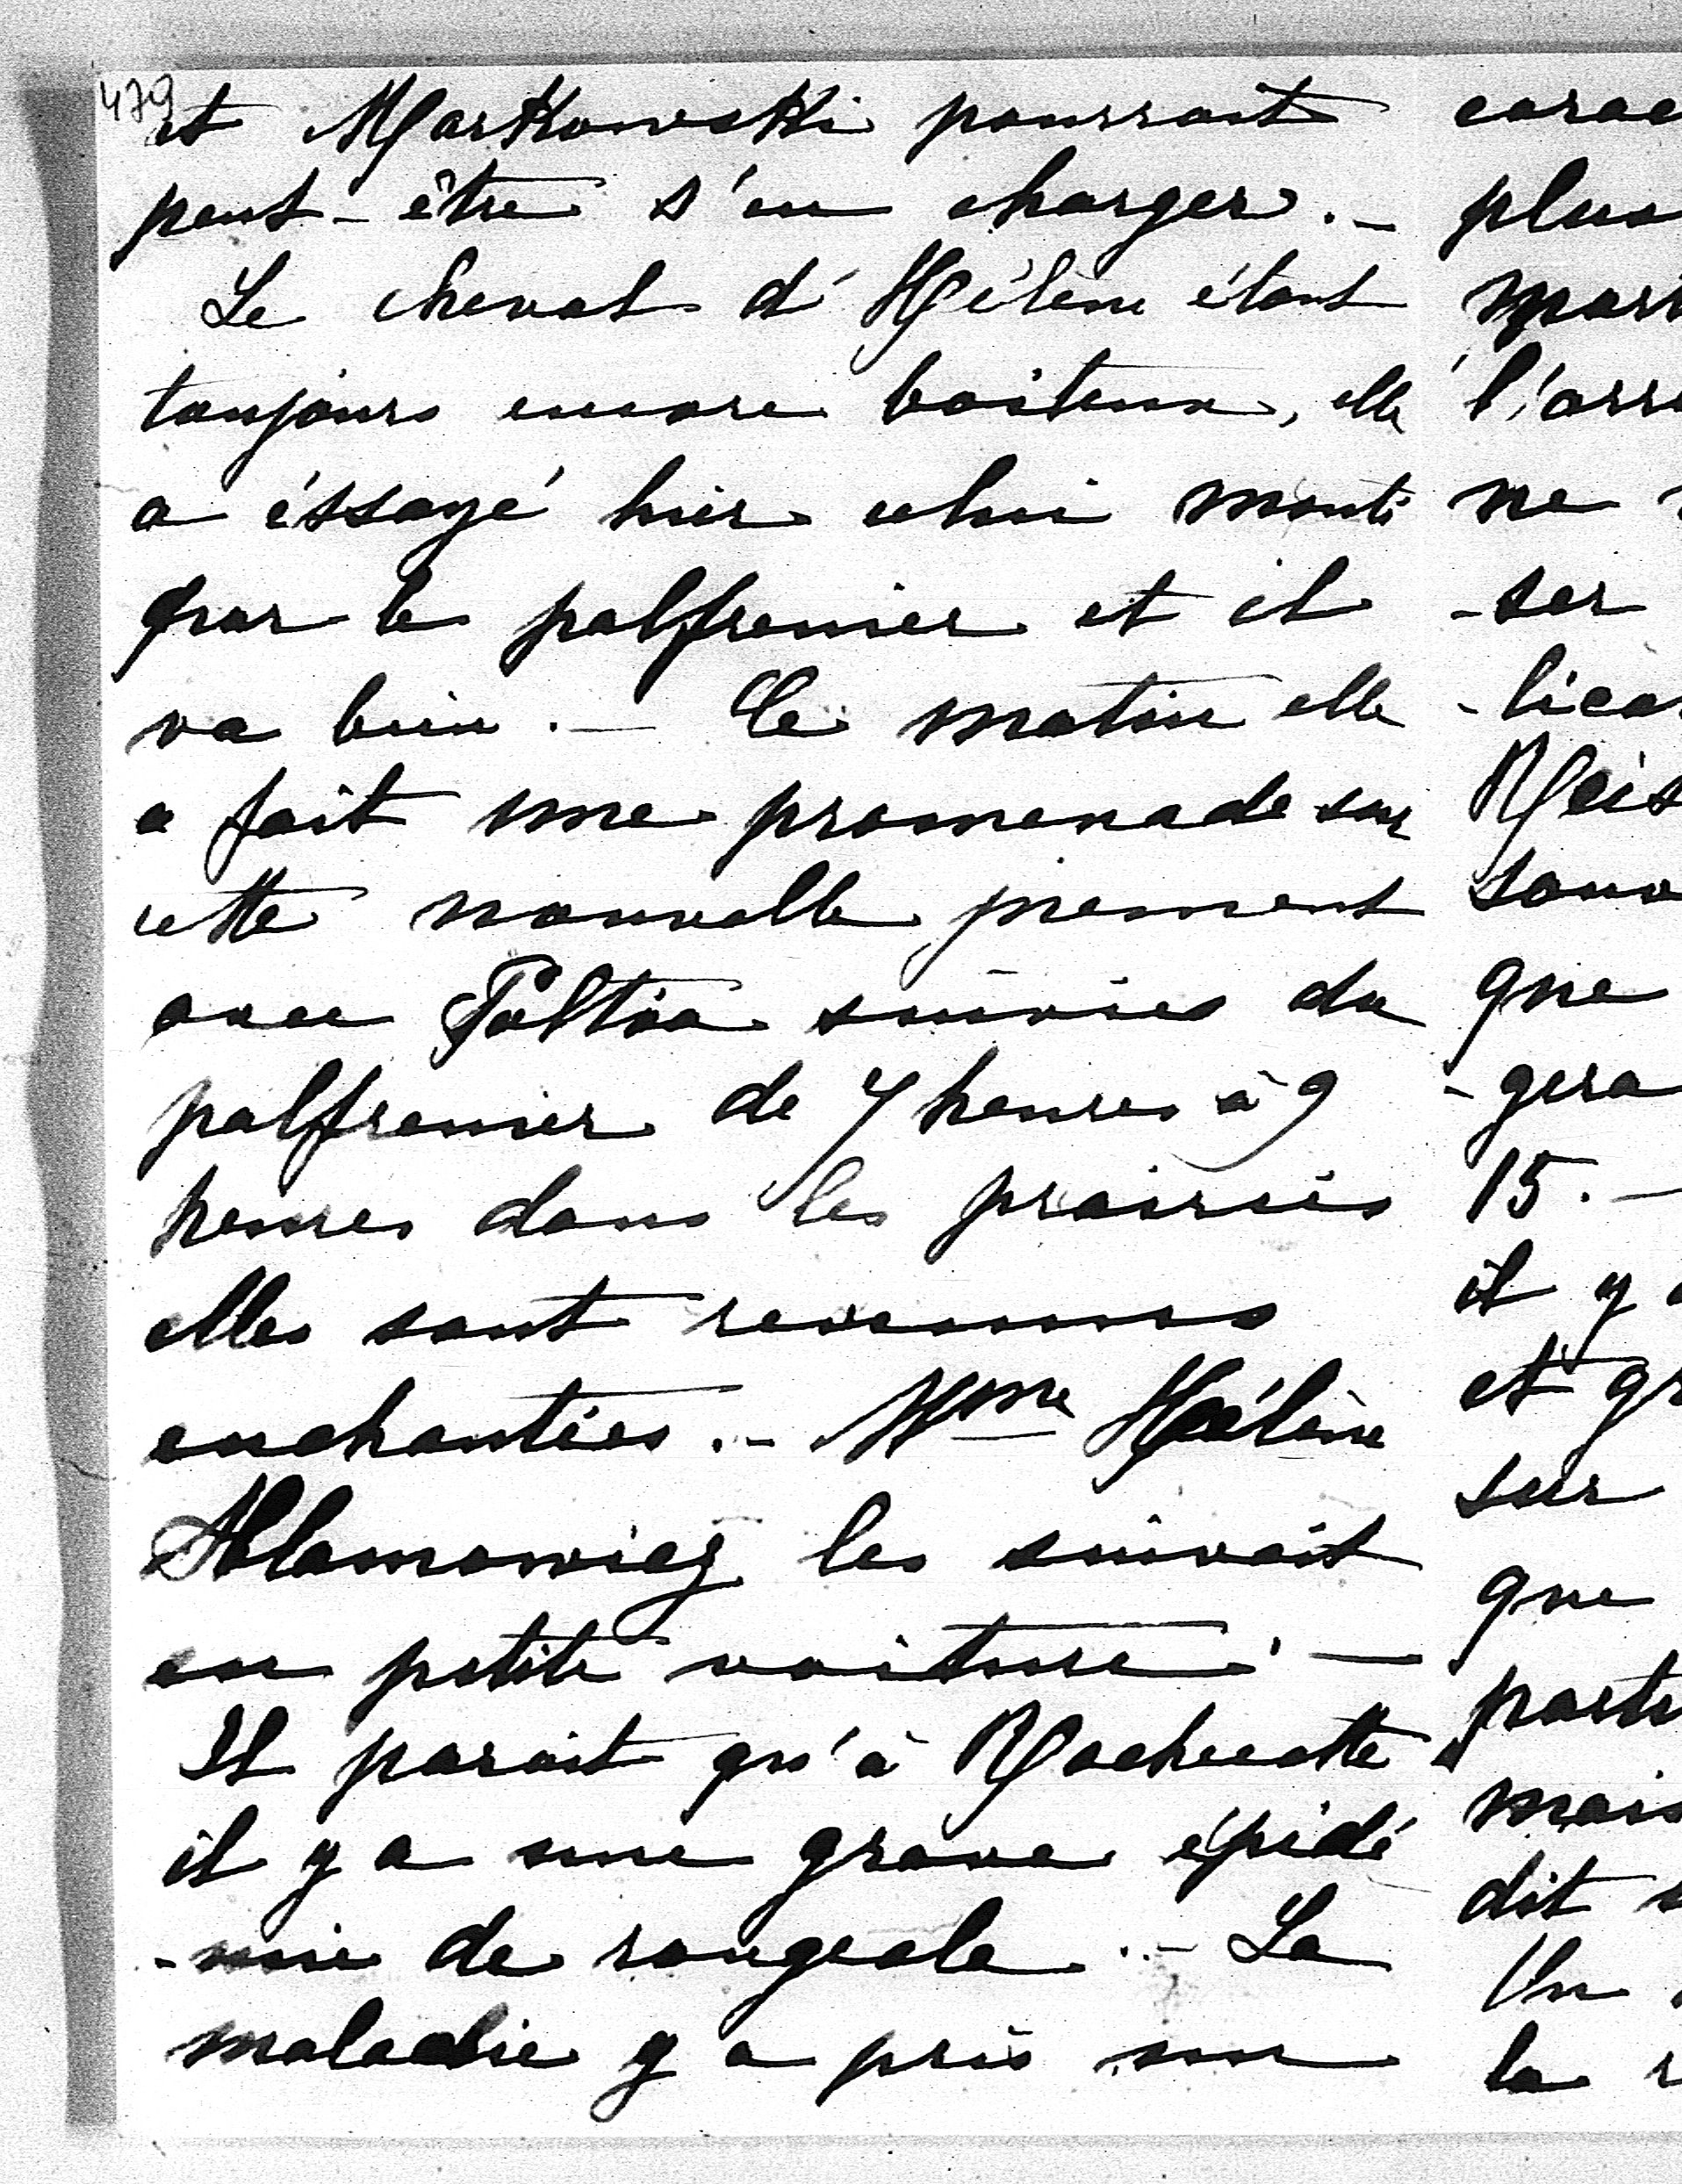 479
et Markowski pourrait
peut-être s'en charger. -
Le cheval d'Hélène étant
toujours encore boiteux, elle
a éssayé hier celui monté
par le palfrenier et il
va bien. - Ce matin elle
a fait une promenade sur
cette nouvelle jument
avec suivies du
palfrenier de 7 heures à 9
heures dans les prairies
elles sont revenues
enchantées. - Mme Hélène
Ablamowicz les suivait
en petite voiture. -
Il parait qu'à Rochecotte
il y a une grave épidé
-mie de rougeole. - La
maladie y a pris un
carac
plus
mort
l'arri
ne
-ser
-lica
Meis
souv
que
-gera
15. -
il y a
et gr
sur
que
parti
mais
dit
Un
la r